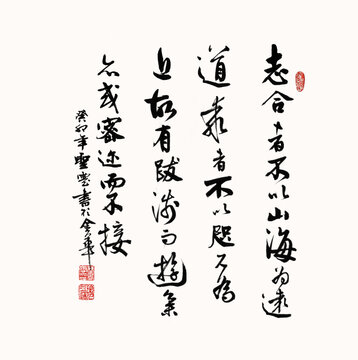 志合者不以山海为遠
道乖者不以咫尺為
近故有跋涉而遊集
亦或密迩而不接
癸卯年聖雲書於金華